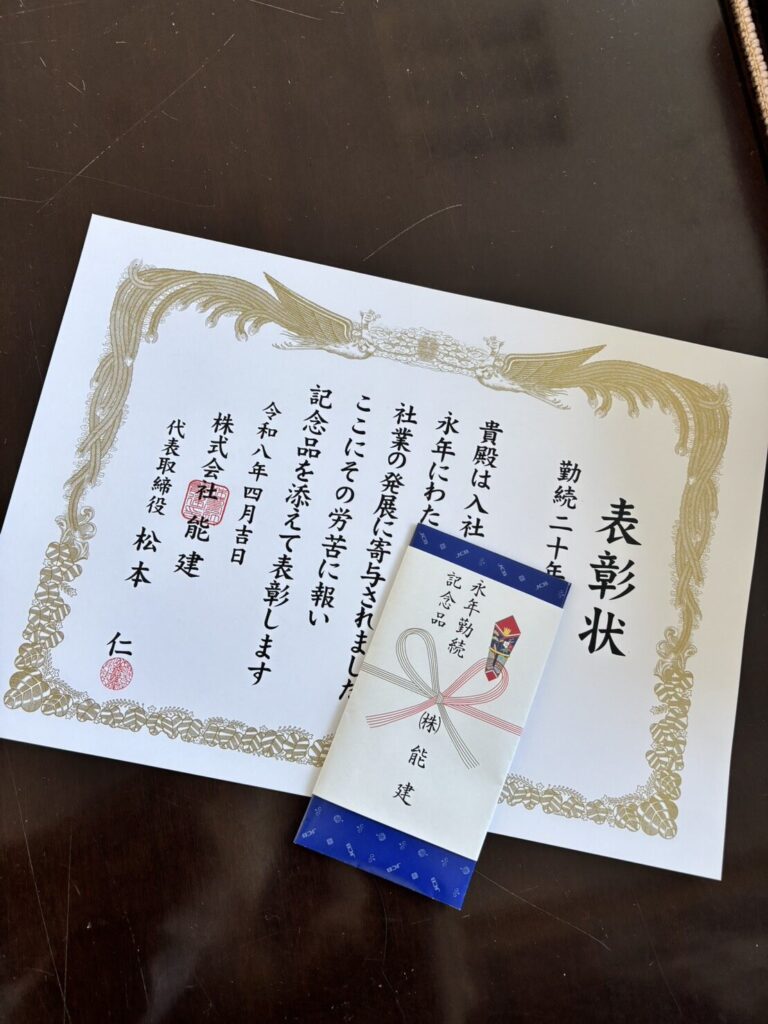 表彰状
勤続二十年
貴殿は入社
永年にわた
社業の発展に寄与されました
ここにその労苦に報い
記念品を添えて表彰します
令和八年四月吉日
株式会社能建
代表取締役 松本 仁
永年勤続
記念品
㈱能建
JCB